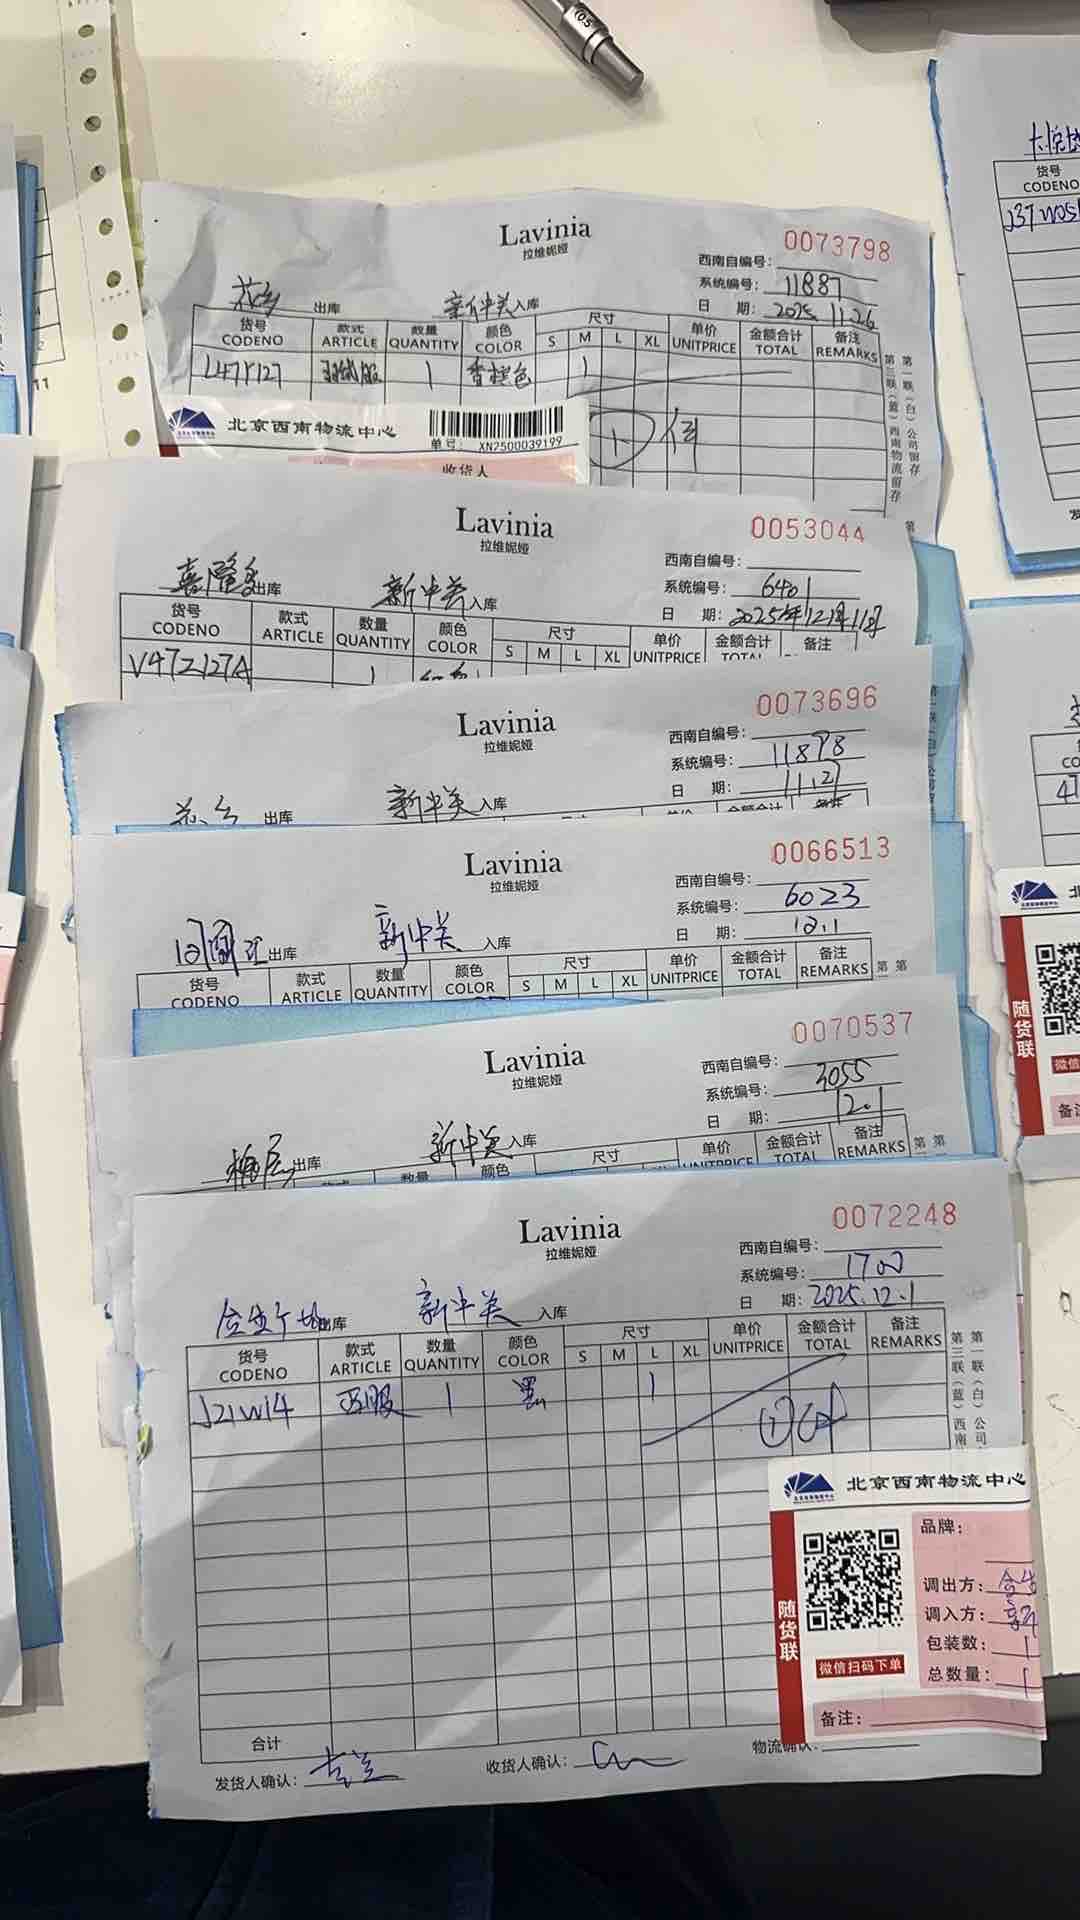 (0.5
11
Lavinia
拉维妮娅
0073798
西南自编号:
系统编号: 11887
花乡 出库 新中关 入库
日 期: 2025.11.26
货号 款式 数量 颜色 尺寸 单价 金额合计 备注
CODENO ARTICLE QUANTITY COLOR S M L XL UNITPRICE TOTAL REMARKS
L47Y127 羽绒服 1 香槟色 1
1件
第一联(白)公司留存
第三联(蓝)西南物流留存
北京西南物流中心
单号: XN2500039199
收货人
Lavinia
拉维妮娅
0053044
西南自编号:
系统编号: 6401
喜隆多 出库 新中关 入库
日 期: 2025年12月1日
货号 款式 数量 颜色 尺寸 单价 金额合计 备注
CODENO ARTICLE QUANTITY COLOR S M L XL UNITPRICE TOTAL
V47Z127A 1
Lavinia
拉维妮娅
0073696
西南自编号:
系统编号: 11898
花乡 出库 新中关 入库
日 期: 11.27
单价 金额合计 备注
Lavinia
拉维妮娅
0066513
西南自编号:
系统编号: 6023
出库 新中关 入库
日 期: 12.1
货号 款式 数量 颜色 尺寸 单价 金额合计 备注
CODENO ARTICLE QUANTITY COLOR S M L XL UNITPRICE TOTAL REMARKS
Lavinia
拉维妮娅
0070537
西南自编号:
系统编号: 3055
出库 新中关 入库
日 期: 12.1
款式 数量 颜色 尺寸 单价 金额合计 备注
UNITPRICE TOTAL REMARKS
Lavinia
拉维妮娅
0072248
西南自编号:
系统编号: 1700
合生广场 出库 新中关 入库
日 期: 2025.12.1
货号 款式 数量 颜色 尺寸 单价 金额合计 备注
CODENO ARTICLE QUANTITY COLOR S M L XL UNITPRICE TOTAL REMARKS
J21W14 羽服 1 黑 1
1件
第一联(白)公司
第三联(蓝)西南
北京西南物流中心
随货联
微信扫码下单
品牌:
调出方: 合生
调入方: 新中
包装数: 1
总数量: 1
备注:
合计
发货人确认:
收货人确认:
物流确认:
大悦城
货号
CODENO
J37W05
CO
47
北
随货联
微信
备注